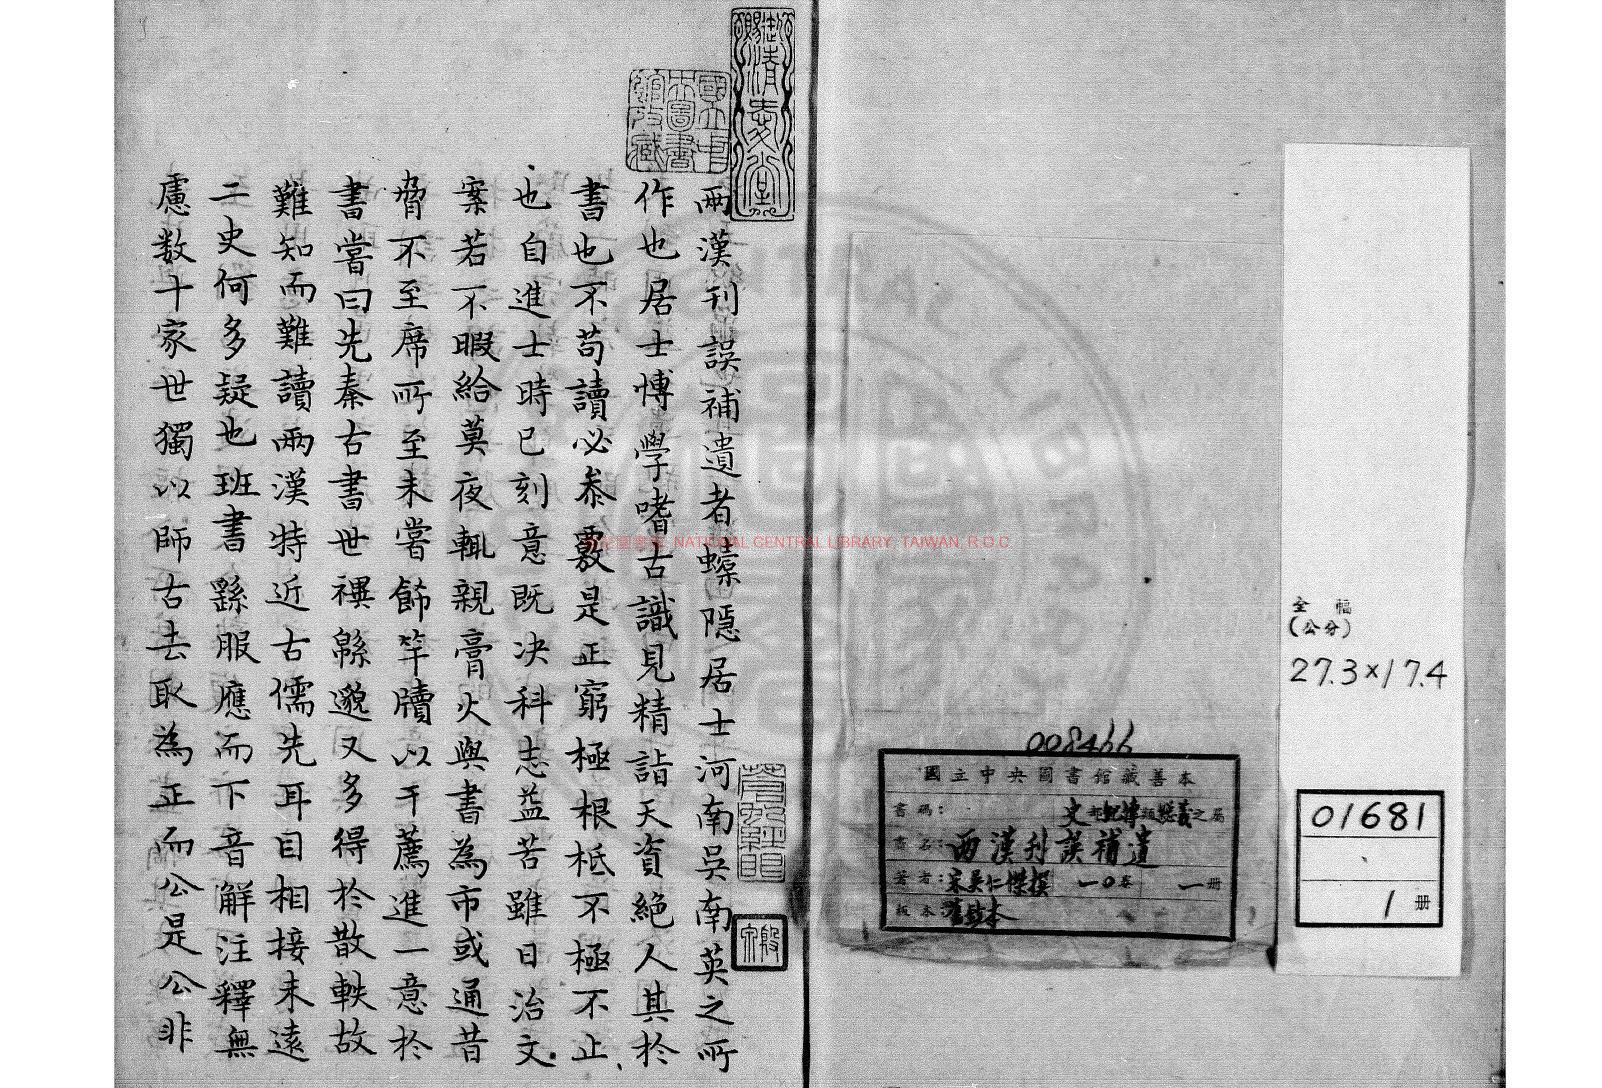 全幅
(公分)
27.3×17.4
01681
1 冊
008466
國立中央圖書館藏善本
書碼: 史部紀傳類總義之屬
書名: 兩漢刊誤補遺
著者: 宋吳仁傑撰 一〇卷 一冊
版本: 舊鈔本
御賜清愛堂
國立中央圖書館收藏
兩漢刊誤補遺者螓隱居士河南吳南英之所
作也居士博學嗜古識見精詣天資絕人其於
書也不苟讀必叅覈是正窮極根柢不極不止
也自進士時已刻意既決科志益苦雖日治文
案若不暇給莫夜輒親膏火與書為市或通昔
脅不至席所至未嘗飾竿牘以干薦進一意於
書嘗曰先秦古書世禩緜邈又多得於散軼故
難知而難讀兩漢特近古儒先耳目相接未遠
二史何多疑也班書繇服應而下音解注釋無
慮数十家世獨以師古去取為正而公是公非
NATIONAL CENTRAL LIBRARY, TAIWAN, R.O.C.